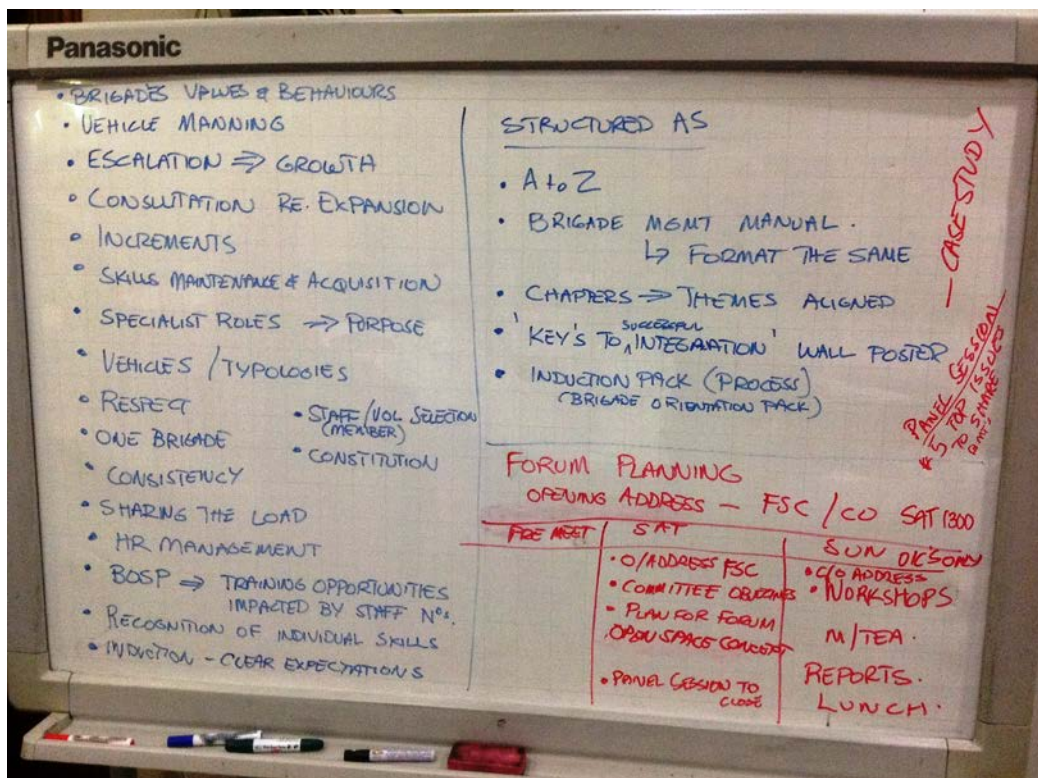 Panasonic
• BRIGADES VALUES & BEHAVIOURS
• VEHICLE MANNING
• ESCALATION ⇒ GROWTH
• CONSLUTATION RE. EXPANSION
• INCREMENTS
• SKILLS MAINTENANCE & ACQUISITION
• SPECIALIST ROLES → PURPOSE
• VEHICLES / TYPOLOGIES
• RESPECT
• ONE BRIGADE
• CONSISTENCY
• SHARING THE LOAD
• HR MANAGEMENT
• BOSP ⇒ TRAINING OPPORTUNITIES
IMPACTED BY STAFF Nos.
• RECOGNITION OF INDIVIDUAL SKILLS
• INDUCTION - CLEAR EXPECTATIONS
• STAFF / VOL SELECTION
(MEMBER)
• CONSTITUTION
STRUCTURED AS
• A to Z
• BRIGADE MGMT MANUAL.
↳ FORMAT THE SAME
• CHAPTERS → THEMES ALIGNED
SUCCESSFUL
• 'KEY'S TO ^ INTEGRATION' WALL POSTER
• INDUCTION PACK (PROCESS)
(BRIGADE ORIENTATION PACK)
— CASE STUDY
PANEL SESSION
* 5 TOP ISSUES
TO SHARE
FORUM PLANNING
OPENING ADDRESS — FSC / CO SAT 1300
PRE MEET
SAT
• O/ADDRESS FSC
• COMMITTEE
• PLAN FOR FORUM
OPEN SPACE CONCEPT
• PANEL SESSION TO
CLOSE
SUN OIC'S ONLY
• C/O ADDRESS
• WORKSHOPS
M/TEA.
REPORTS.
LUNCH.